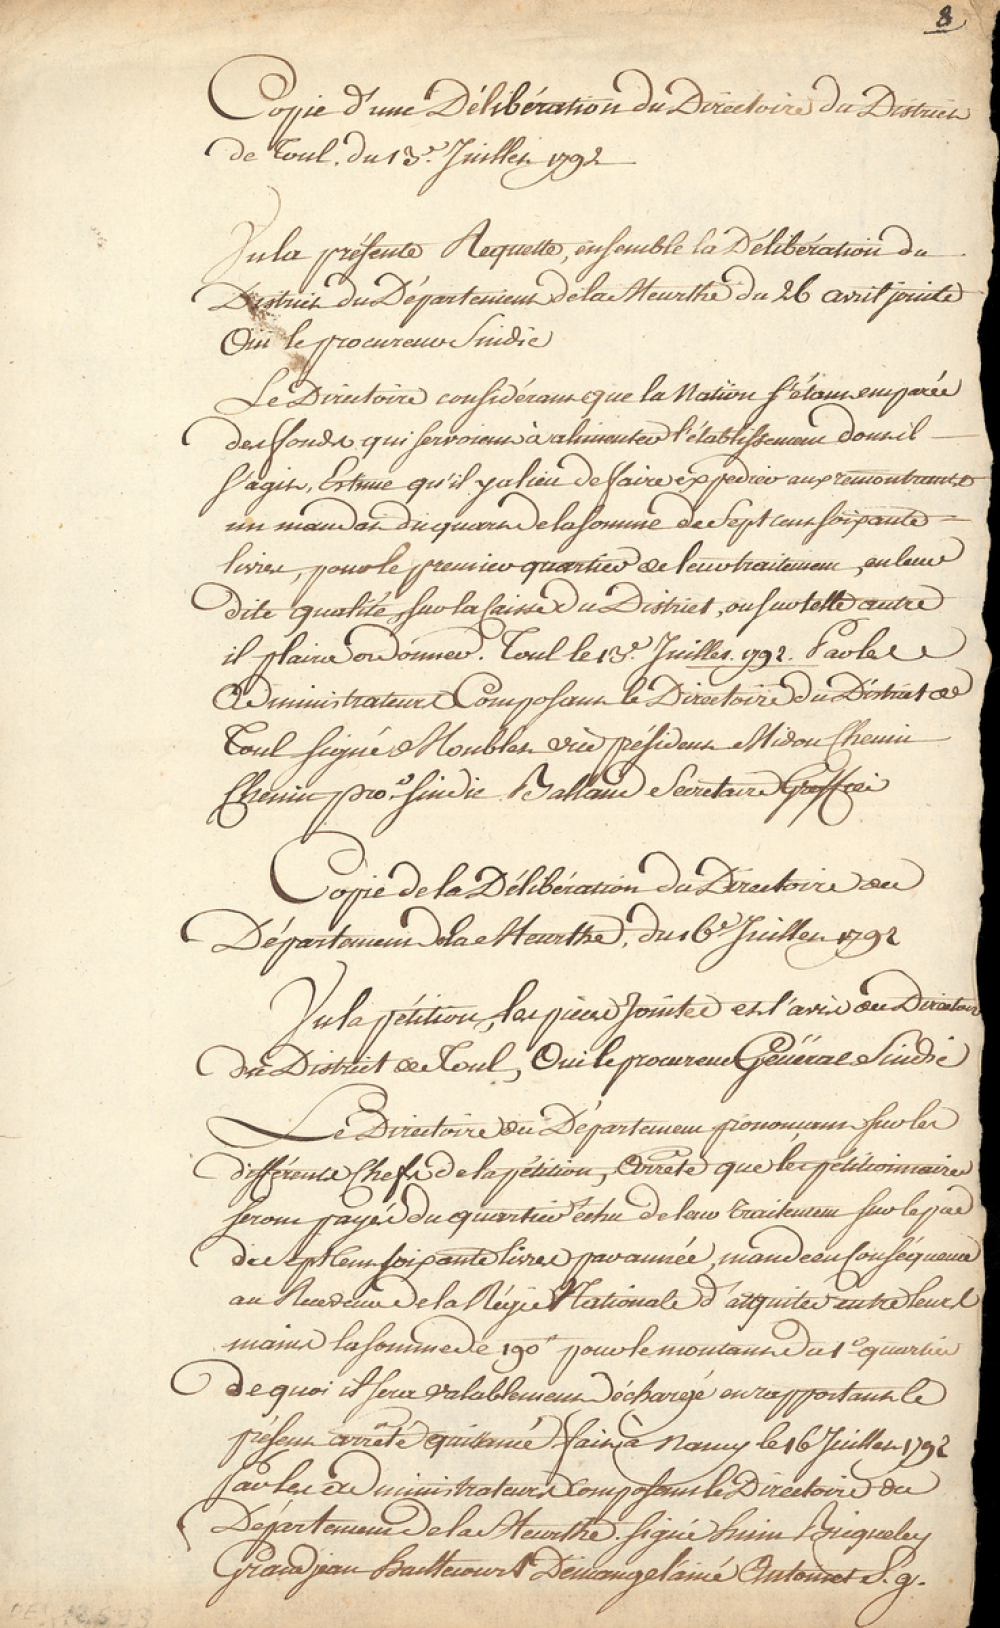 8
Copie d'une Délibération du Directoire du District
de Toul, du 13e. Juillet 1792
Vu la présente Requette, ensemble la Délibération du
District du Département de la Meurthe du 26 avril jointe
Oüi le procureur Sindic
Le Directoire considérant que la Nation s'étant emparée
des fonds qui servoient à alimenter l'établissement dont il
s'agit, Estime qu'il y a lieu de faire expedier aux remontrants
un mandat du quart de la somme de Sept cent soixante
livres, pour le premier quartier de leur traitement, en leur
dite qualité, sur la Caisse du District, ou sur telle autre
il plaira ordonner. Toul le 13e. Juillet 1792. Par les
Administrateurs Composant le Directoire du District de
Toul signé vice président Midon Chenin
Chenin pro.r sindic Balland Secretaire Greffier
Copie de la Délibération du Directoire du
Département de la Meurthe, du 16e Juillet 1792
Vu la pétition, les pièces Jointes et l'avis du Directoire
du District de Toul, Oui le procureur Général Sindic
Le Directoire du Département prononçant sur les
différents Chefs de la pétition, Arrête que les pétitionnaires
seront payés du quartier échu de leur Traitement sur le pié
de sept cent soixante livres par année, mande en Conséquence
au Receveur de la Régie Nationale d'acquiter entre leurs
mains la somme de 190# pour le montant du 1er quartier
de quoi il sera valablement déchargé en rapportant le
présent arrêté quittancé fait à Nancy le 16 Juillet 1792
Par les administrateurs composant le Directoire du
Département de la Meurthe. signé Briqueley
Grandjean Haittecourt Demangel ainé Antoinet S. g.